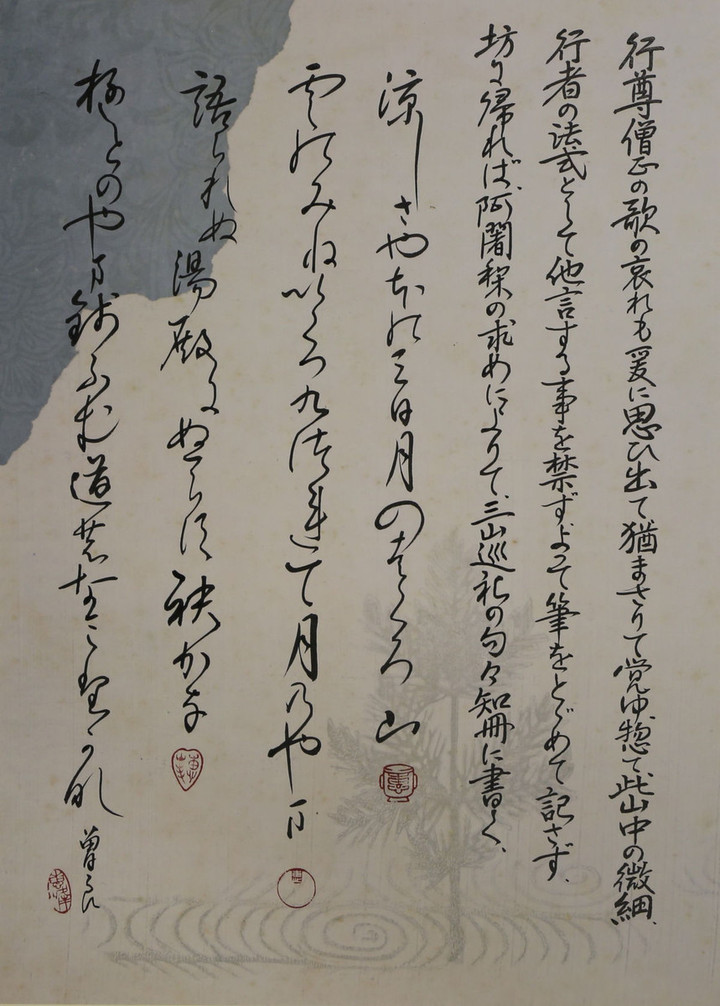 行尊僧正の歌の哀れも爰に思ひ出て猶まさりて覚ゆ惣て此山中の微細、
行者の法式として他言する事を禁ず、よつて筆をとゞめて記さず、
坊に帰れば、阿闍梨の求めによりて、三山巡礼の句々短冊に書く、
涼しさやほの三日月のはくろ山
雲のみねいくつ九つ連て月乃やま
語られぬ湯殿にぬらす袂かな
ゆとのやま銭ふむ道のなみだかな 曽良